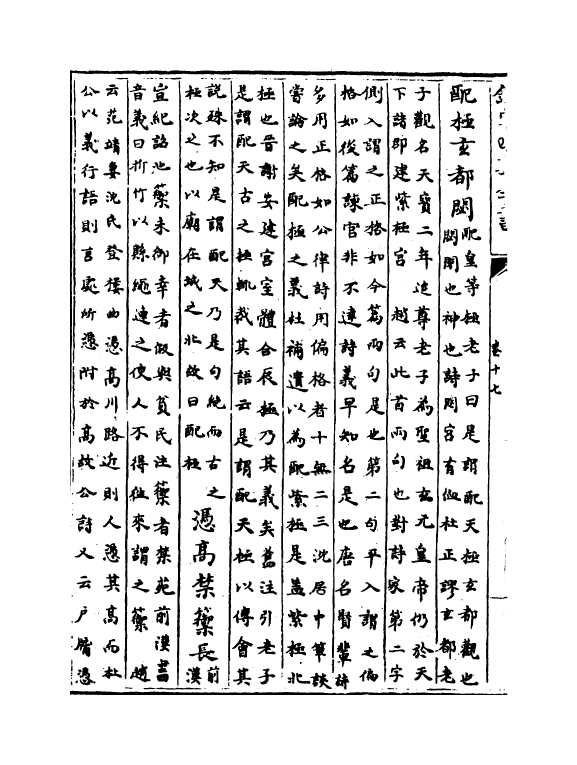 卷十七
配極玄都閟
配皇等極老子曰是謂配天極玄都觀也
閟閉也神也詩閟宮有侐杜正謬玄都老
子觀名天寶二年追尊老子為聖祖玄元皇帝仍於天
下諸郡建紫極宮　趙云此首兩句也對詩家第二字
側入謂之正格如今篇兩句是也第二句平入謂之偏
格如後篇諫官非不達詩義早知名是也唐名賢輩詩
多用正格如公律詩用偏格者十無二三沈居中筆談
嘗論之矣配極之義杜補遺以為配紫極是蓋紫極北
極也晉謝安建宮室體合辰極乃其義矣舊注引老子
是謂配天古之極輒裁其語云是謂配天極以傅會其
說殊不知是謂配天乃是句絶而古之
極次之也以廟在城之北故曰配極
憑高禁籞長
前
漢
宣紀詔池籞未御幸者假與貧民注籞者禁苑前漢書
音義曰折竹以縣繩連之使人不得往來謂之籞　趙
云范靖妻沈氏登樓曲憑高川路近則人憑其高而杜
公以義行語則言處所憑附於高故公詩又云戶牖憑